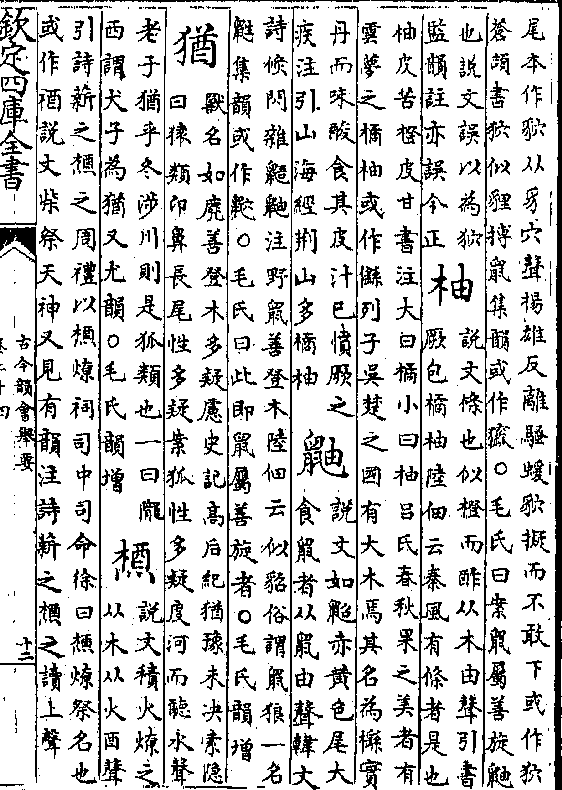 尾本作狖从豸穴聲楊雄反離騷蝯狖擬而不敢下或作狖
蒼頡書狖似貍搏鼠集韻或作㺠○毛氏曰案鼠屬善旋鼬
也說文誤以為狖
監韻註亦誤今正
柚
說文條也似橙而酢从木由聲引書
厥包橘柚陸佃云秦風有條者是也
柚皮苦橙皮甘書注大曰橘小曰柚呂氏春秋果之美者有
雲夢之橘柚或作櫾列子吳楚之國有大木焉其名為櫾實
丹而味酸食其皮汁已憤厥之
疾注引山海經荆山多橘柚
鼬
說文如鼦亦黃色尾大
食鼠者从鼠由聲韓文
詩候閃雜鼯鼬注野鼠善登木陸佃云似貂俗謂鼠狼一名
鼪集韻或作㹨○毛氏曰此即鼠屬善旋者○毛氏韻增
猶
獸名如麂善登木多疑慮史記高后紀猶豫未决索隐
曰猿類卬鼻長尾性多疑案狐性多疑度河而聽水聲
老子猶乎冬渉川則是狐類也一曰隴
西謂犬子為猶又尤韻○毛氏韻增
槱
說文積火燎之
从木从火酉聲
引詩薪之槱之周禮以槱燎祠司中司命徐曰槱燎祭名也
或作禉說文柴祭天神又見有韻注詩薪之槱之讀上聲
欽定四庫全書
古今韻會舉要
卷二十四
十二